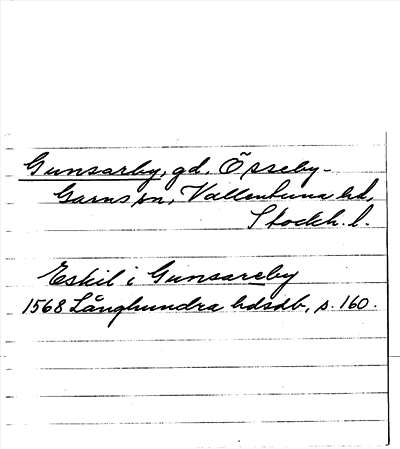 Gunsarby, gd. Össeby-
Garns sn, Vallentuna hd,
Stockh. l.
Eskil i Gunsareby
1568 Långhundra hdsdb, s. 160.